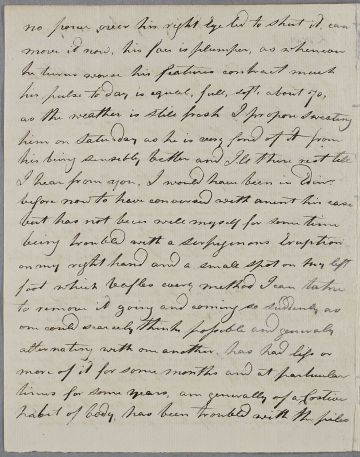 no power over his right Eye Led to shut it, can
move it now, his face is plumper, as whenever
he turns worse his features contract much
his pulse to day is equal, full, soft, about 70,
as the weather is still fresh I propose sweating
him on Saturday as he is very fond of it from
his being sensibly better and I'll then rest till
I hear from you, I would have been in Edinr.
before now to have conversed with anent his case
but has not been well myself for some time
being troubled with a serpiginous Eruption
on my right hand and a small spot on my left
foot which Baffles every method I can take
to remove it going and coming so suddenly as
one could scarcely think possible and generaly
alternating with one another, has had less or
more of it for some months and at particular
times for some years, am generally of a Costive
habit of Body, has been troubled with the piles